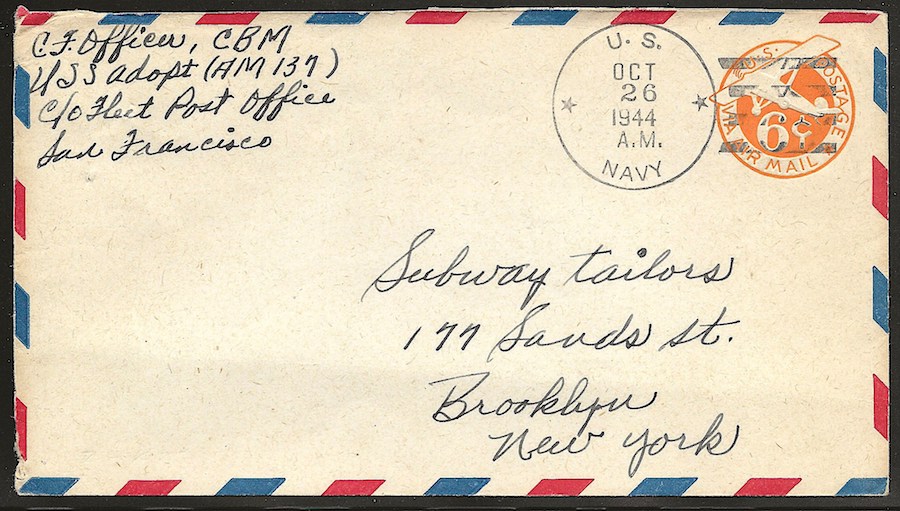 C. F. Officer, CBM
USS Adopt (AM 137)
c/o Fleet Post Office
San Francisco
U. S.
OCT
26
1944
A.M.
NAVY
U.S. POSTAGE
6¢
VIA AIR MAIL
Subway tailors
177 Sands st.
Brooklyn
New York